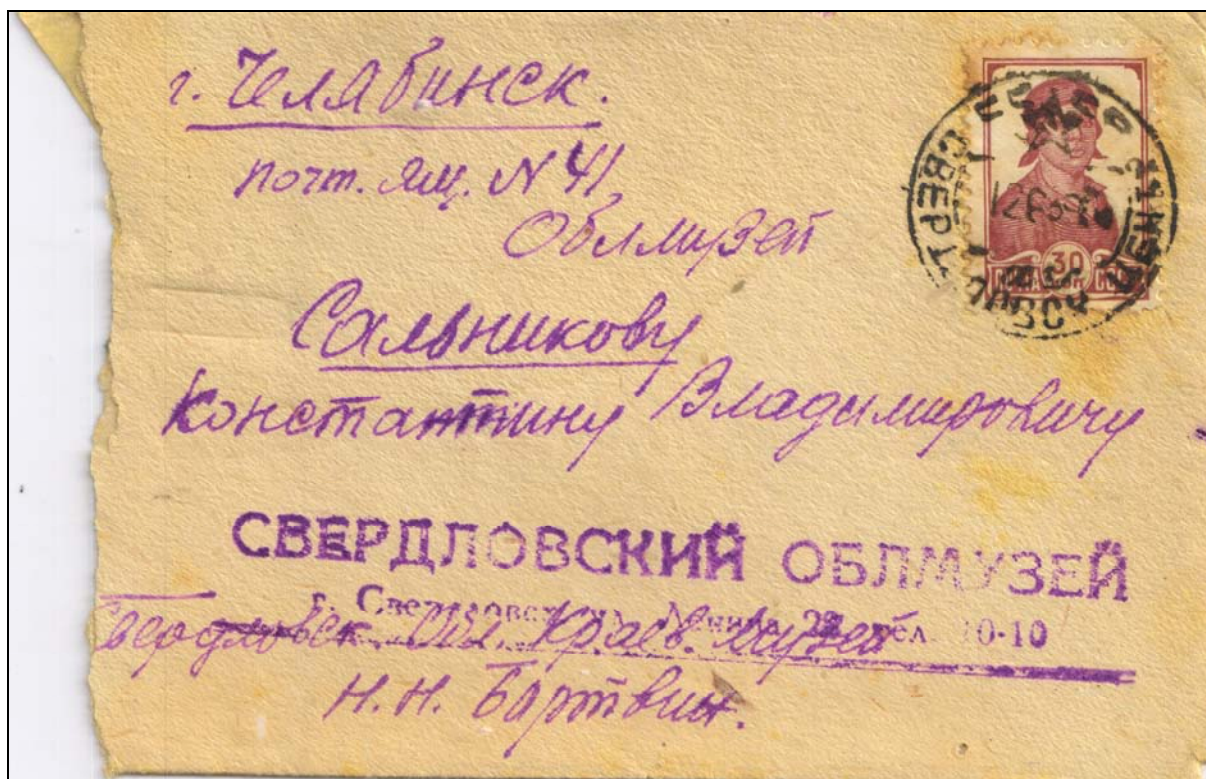 г. Челябинск.
почт. ящ. N 41
Облмузей
Сальникову
Константину Владимировичу
СВЕРДЛОВСКИЙ ОБЛМУЗЕЙ
г. Свердловск, Ленина 10-10
Свердловск Обл. Краев. музей
Н.Н. Бортвин.
30
ПОЧТА СССР
СВЕРДЛОВСК